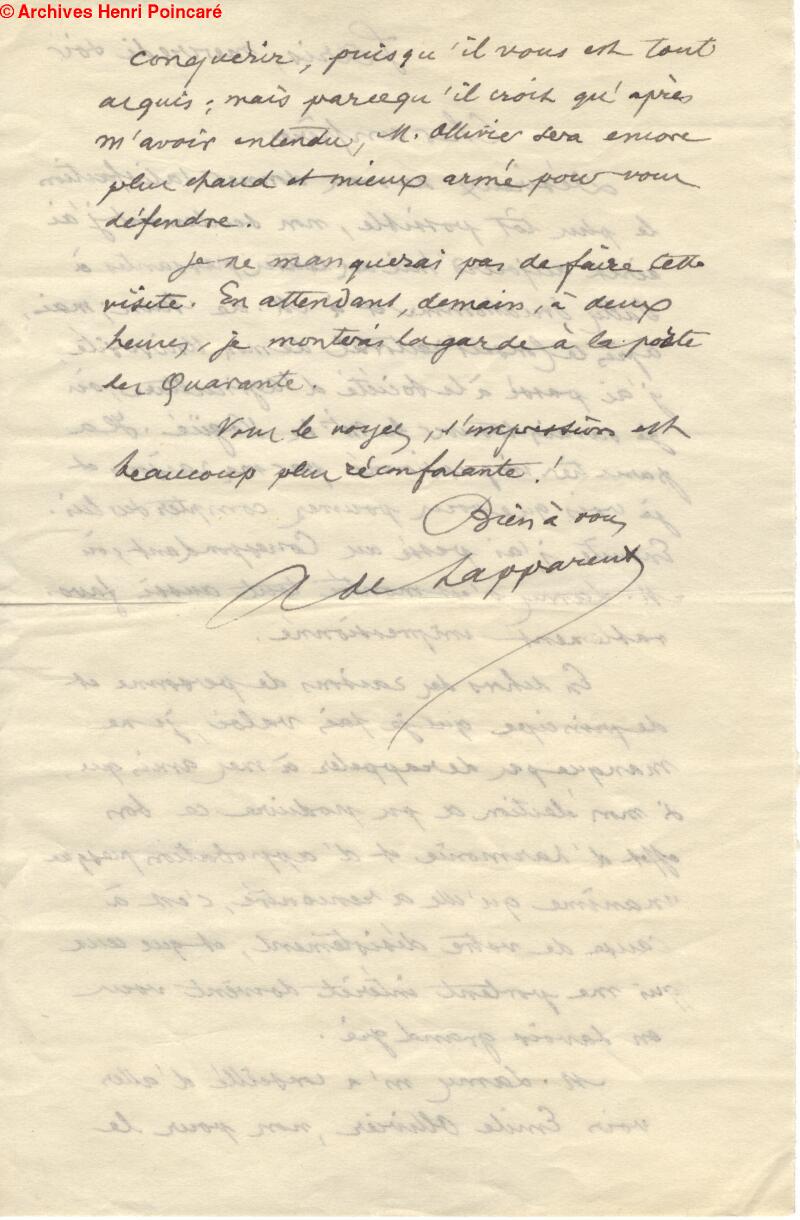 © Archives Henri Poincaré
conquérir, puisqu'il vous est tout
acquis ; mais parcequ'il croit qu'après
m'avoir entendu, M. Ollivier sera encore
plus chaud et mieux armé pour vous
défendre.
Je ne manquerai pas de faire cette
visite. En attendant, demain, à deux
heures, je monterai la garde à la porte
des Quarante.
Vous le voyez, l'impression est
beaucoup plus réconfortante !
Bien à vous
A de Lapparent